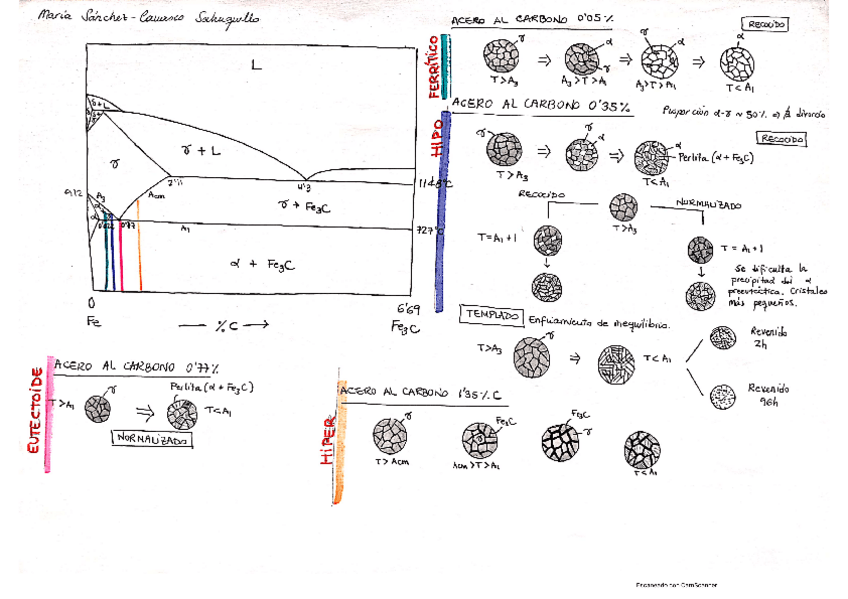 María Sánchez-Carrasco Sahuquillo
L
δ+L
γ
γ + L
2'11
4'3
1148ºC
912
A3
Acm
γ + Fe3C
α
0'022
0'77
A1
727ºC
α + Fe3C
0
6'69
Fe
% C
Fe3C
FERRÍTICO
ACERO AL CARBONO 0'05%
RECOCIDO
γ
α
γ
γ
α
α
T>A3
A3>T>A1
A3>T>A1
T<A1
HIPO
ACERO AL CARBONO 0'35%
Proporción α-γ ~ 50% ⇒ ∄ divorcio
RECOCIDO
γ
γ
α
α
Perlita (α + Fe3C)
T>A3
T<A1
RECOCIDO
NORMALIZADO
T>A3
T=A1+1
T = A1+1
Se dificulta la
precipitad del α
proeutéctica. Cristales
más pequeños.
TEMPLADO
Enfriamiento de mequilibrio.
T>A3
γ
T<A1
Revenido
2h
Revenido
96h
EUTECTOIDE
ACERO AL CARBONO 0'77%
T>A1
γ
Perlita (α + Fe3C)
T<A1
NORMALIZADO
HIPER
ACERO AL CARBONO 1'35% C
γ
Fe3C
Fe3C
γ
T > Acm
Acm >T> A1
T<A1
Escaneado con CamScanner